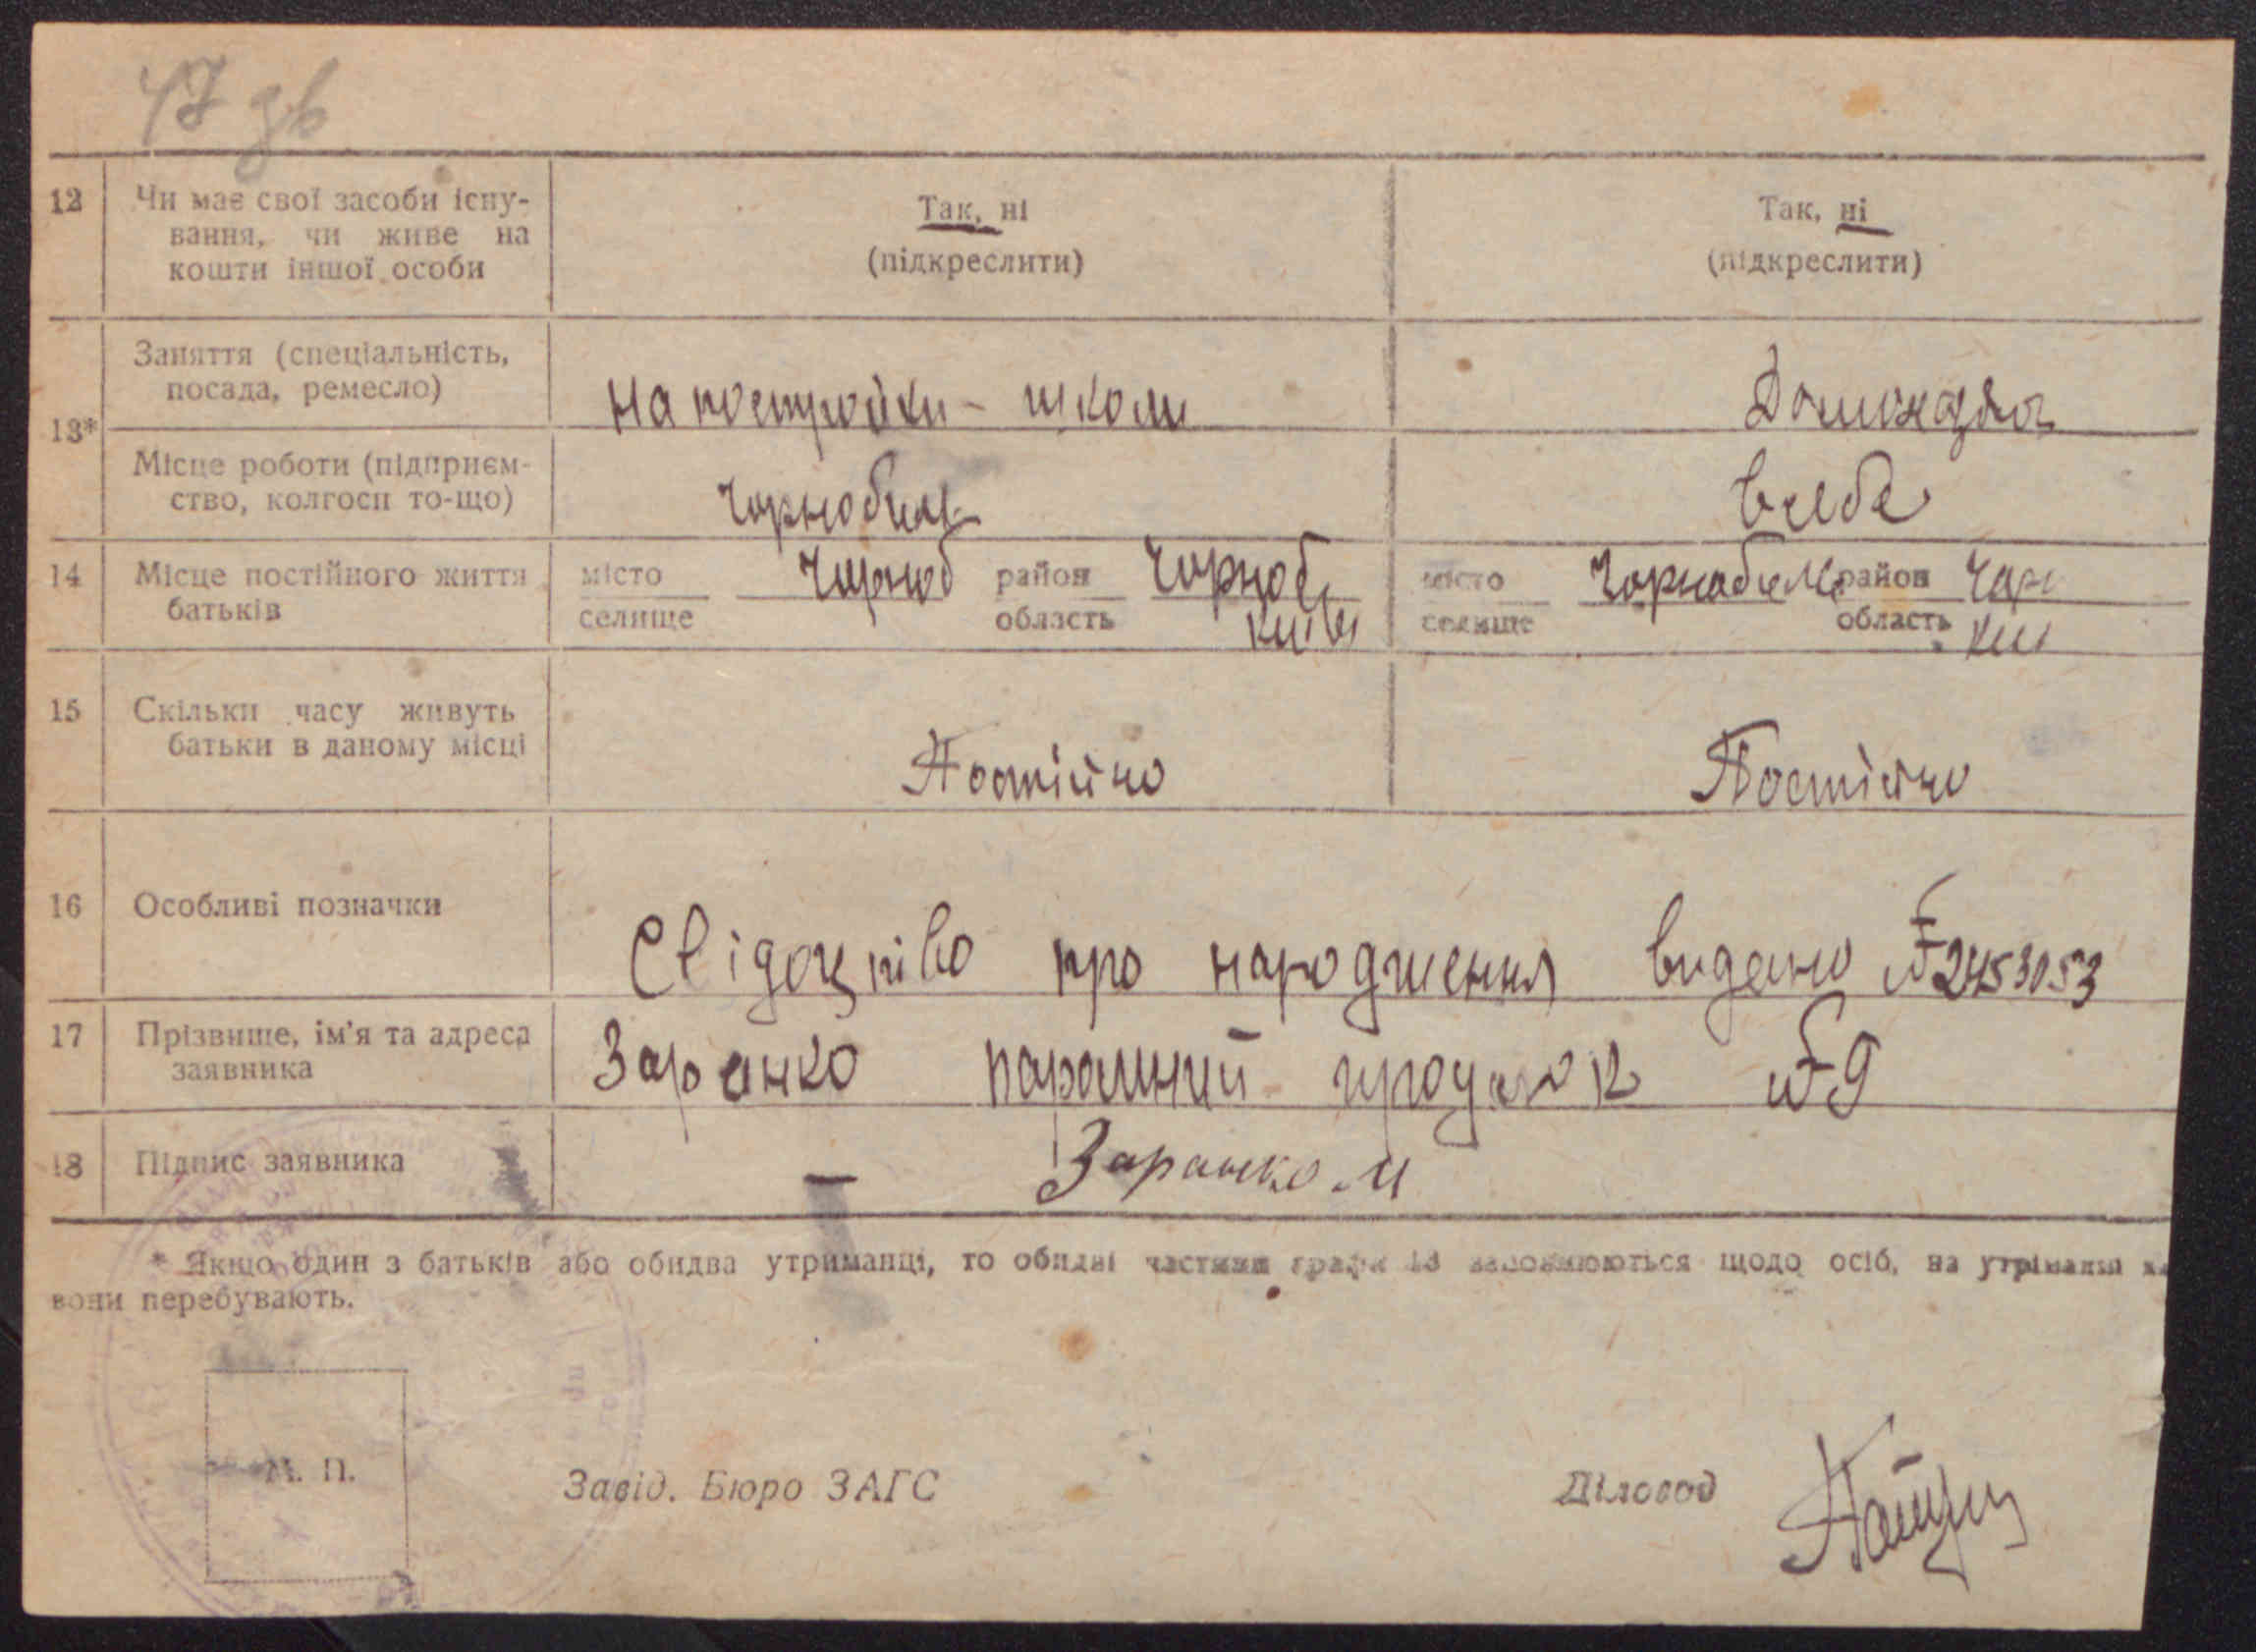 47 зв
12 Чи має свої засоби існу- Так, ні Так, ні
вання, чи живе на
кошти іншої особи (підкреслити) (підкреслити)
Заняття (спеціальність,
посада, ремесло) на постройки - школи Домохазяй
13*
Місце роботи (підприєм-
ство, колгосп то-що) Чорнобиль в себе
14 Місце постійного життя місто Чорноб район Чорноб місто Чорнобиль район Чор
батьків селище область Київ селище область Киї
15 Скільки часу живуть
батьки в даному місці Постійно Постійно
16 Особливі позначки
Свідоцтво про народження видано № 2453053
17 Прізвище, ім'я та адреса Заранко провулок № 9
заявника
18 Підпис заявника — Заранко М
* Якщо один з батьків або обидва утриманці, то обидві частини графи 13 заповнюються щодо осіб, на утриманні
вони перебувають.
М. П.
Завід. Бюро ЗАГС Діловод